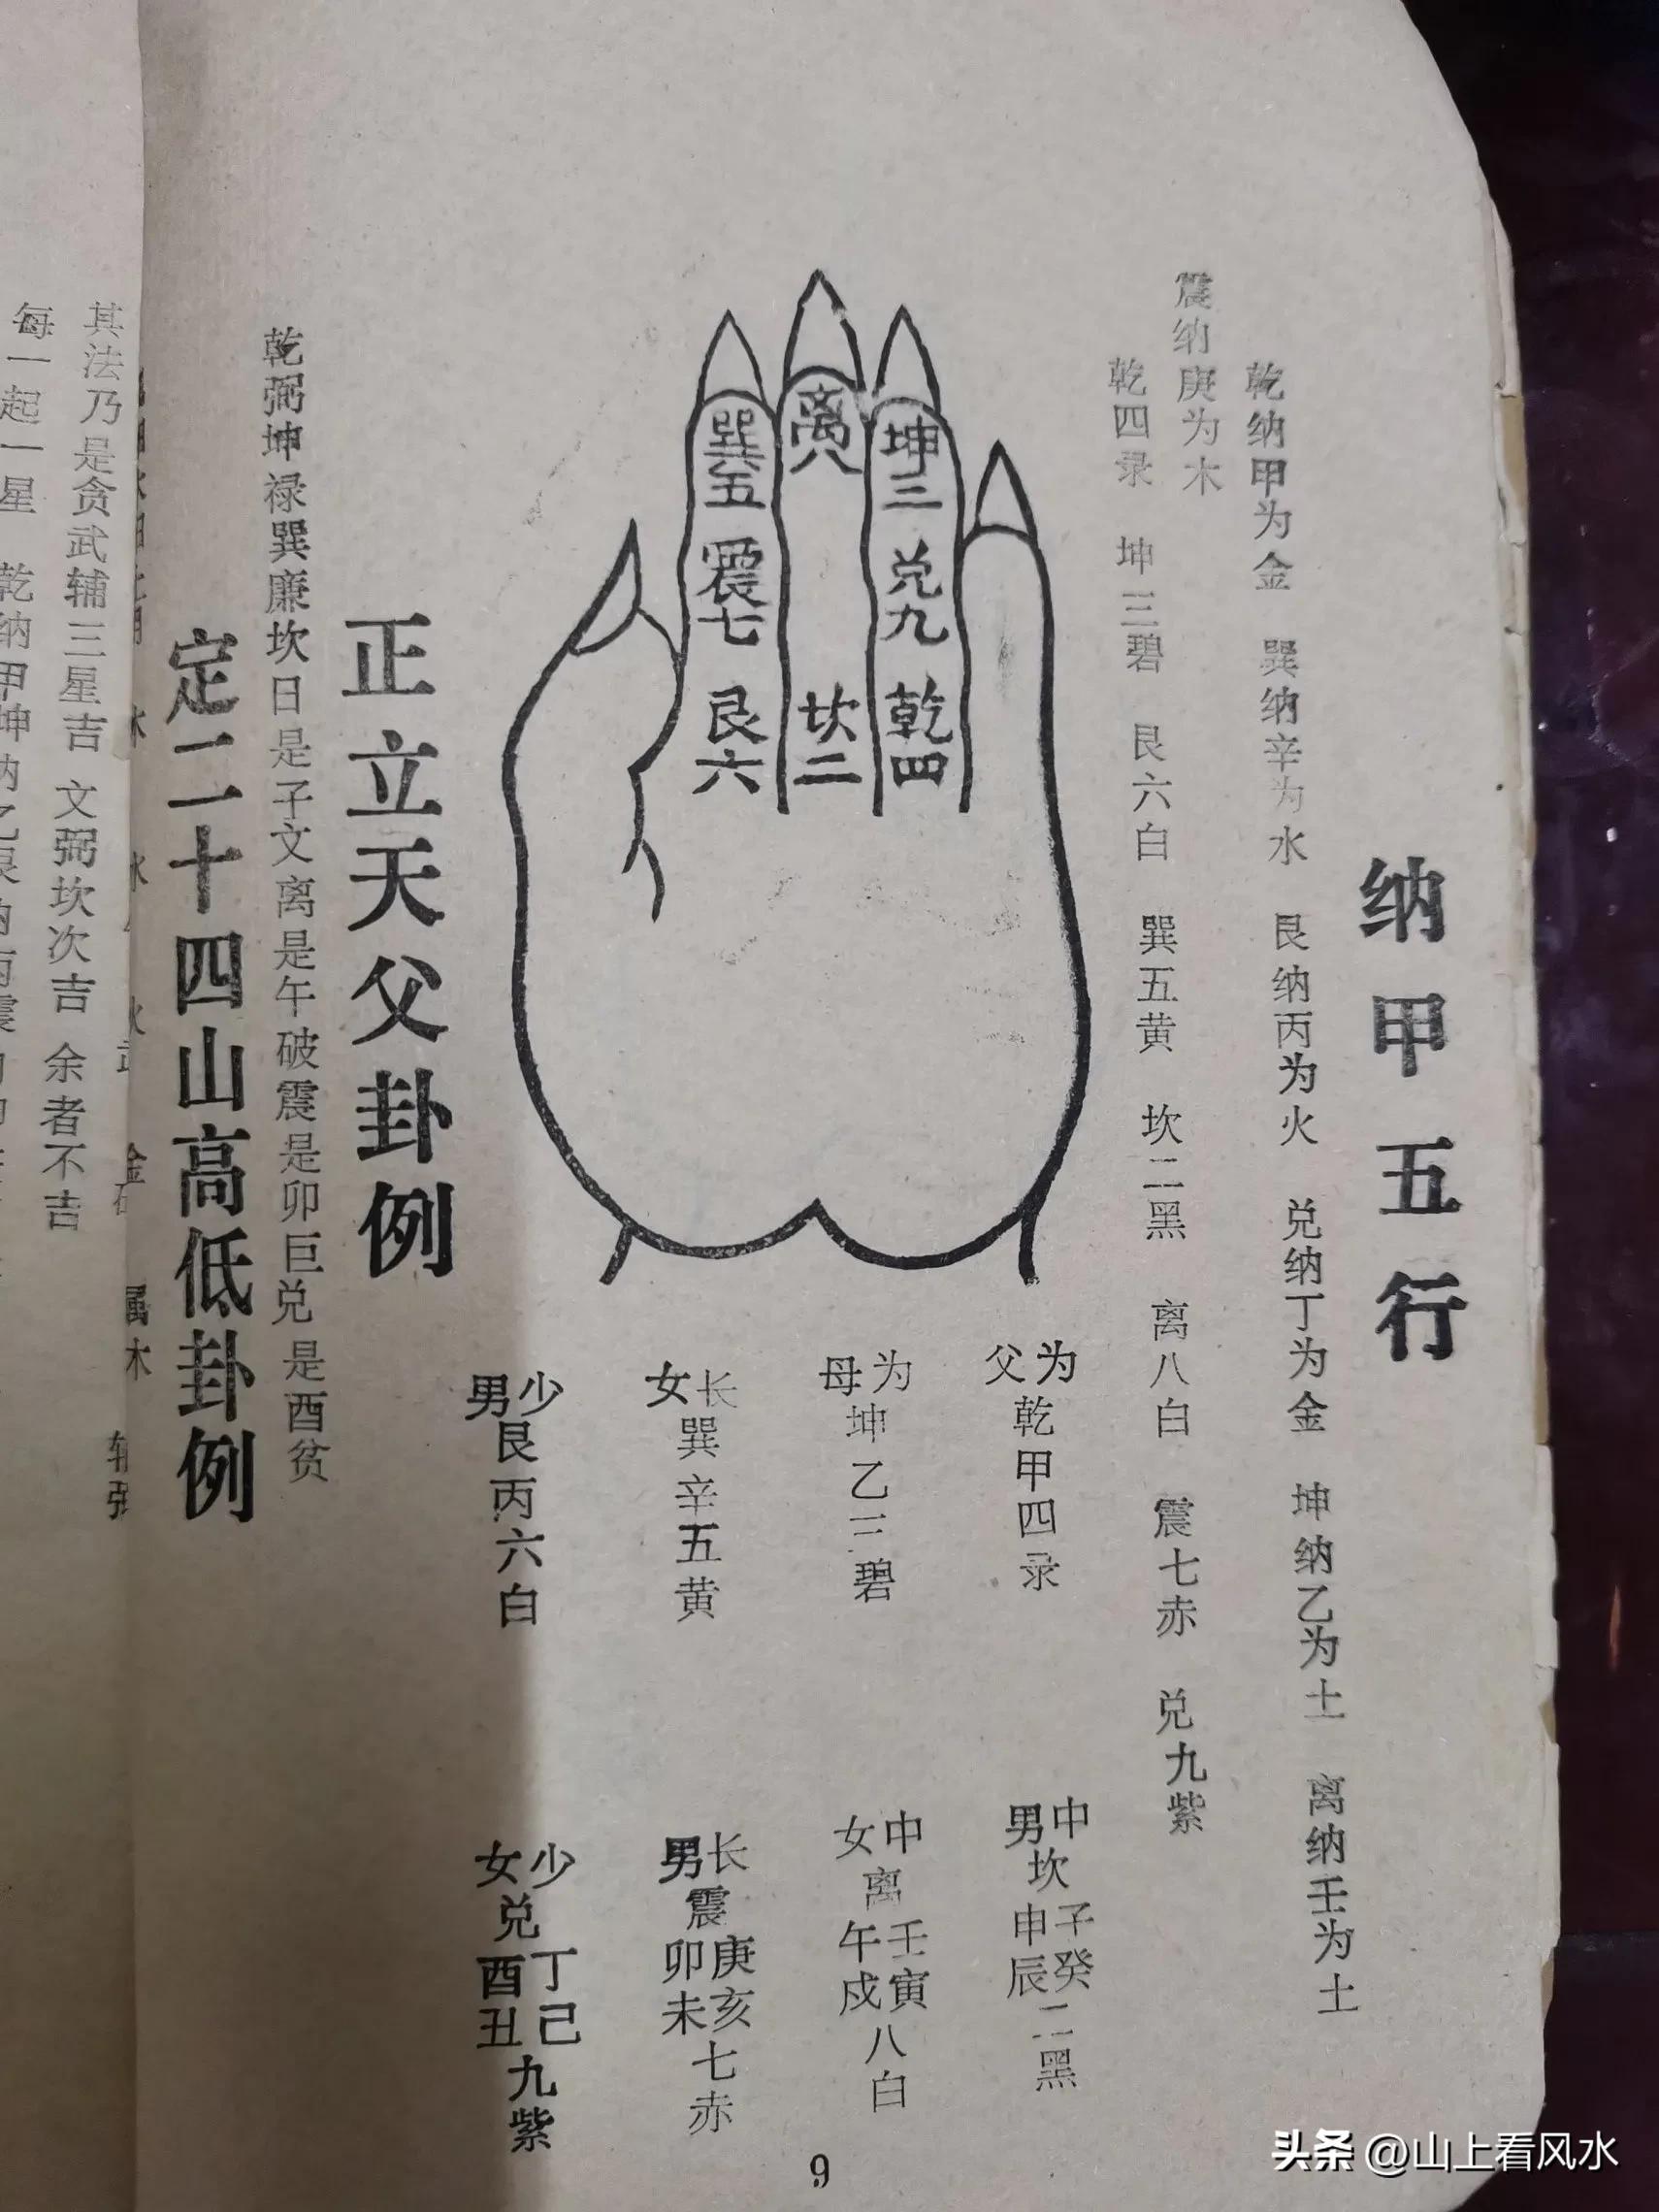 纳甲五行
乾纳甲为金　巽纳辛为水　艮纳丙为火　兑纳丁为金　坤纳乙为土　离纳壬为土
震纳庚为木
乾四录　坤三碧　艮六白　巽五黄　坎二黑　离八白　震七赤　兑九紫
巽五
震七
艮六
离八
坎二
坤三
兑九
乾四
为父乾甲四录
中男坎子癸申辰二黑
为母坤乙三碧
中女离壬寅午戍八白
长女巽辛五黄
长男震庚亥卯未七赤
少男艮丙六白
少女兑丁己酉丑九紫
正立天父卦例
乾弼坤禄巽廉坎日是子文离是午破震是卯巨兑是酉贫
定二十四山高低卦例
其法乃是贪武辅三星吉　文弼坎次吉　余者不吉
每一起一星　乾纳甲坤纳乙艮纳丙震
9
头条 @山上看风水